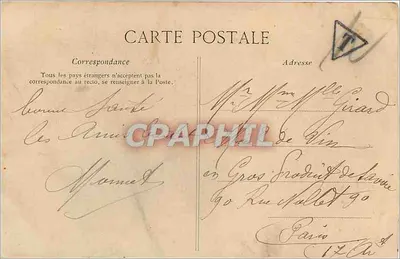 CARTE POSTALE
Correspondance
Tous les pays étrangers n'acceptent pas la
correspondance au recto, se renseigner à la Poste.
Bonne Santé
les Amis
Monnet
T
Adresse
Mr Mme Mlle Girard
de Vin
en Gros Produit de Savoie
90 Rue Nollet 90
Paris
17 Art
CPAPHIL